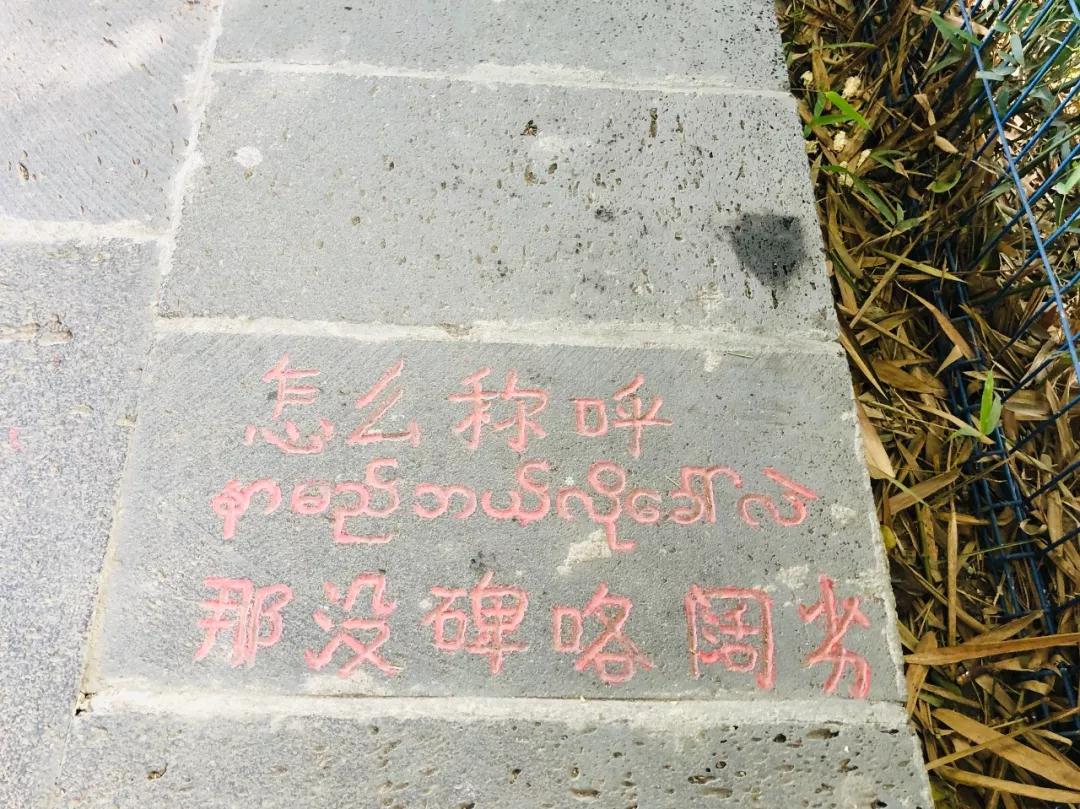 怎么称呼
နာမည်ဘယ်လိုခေါ်လဲ
那没碑咯阔劣